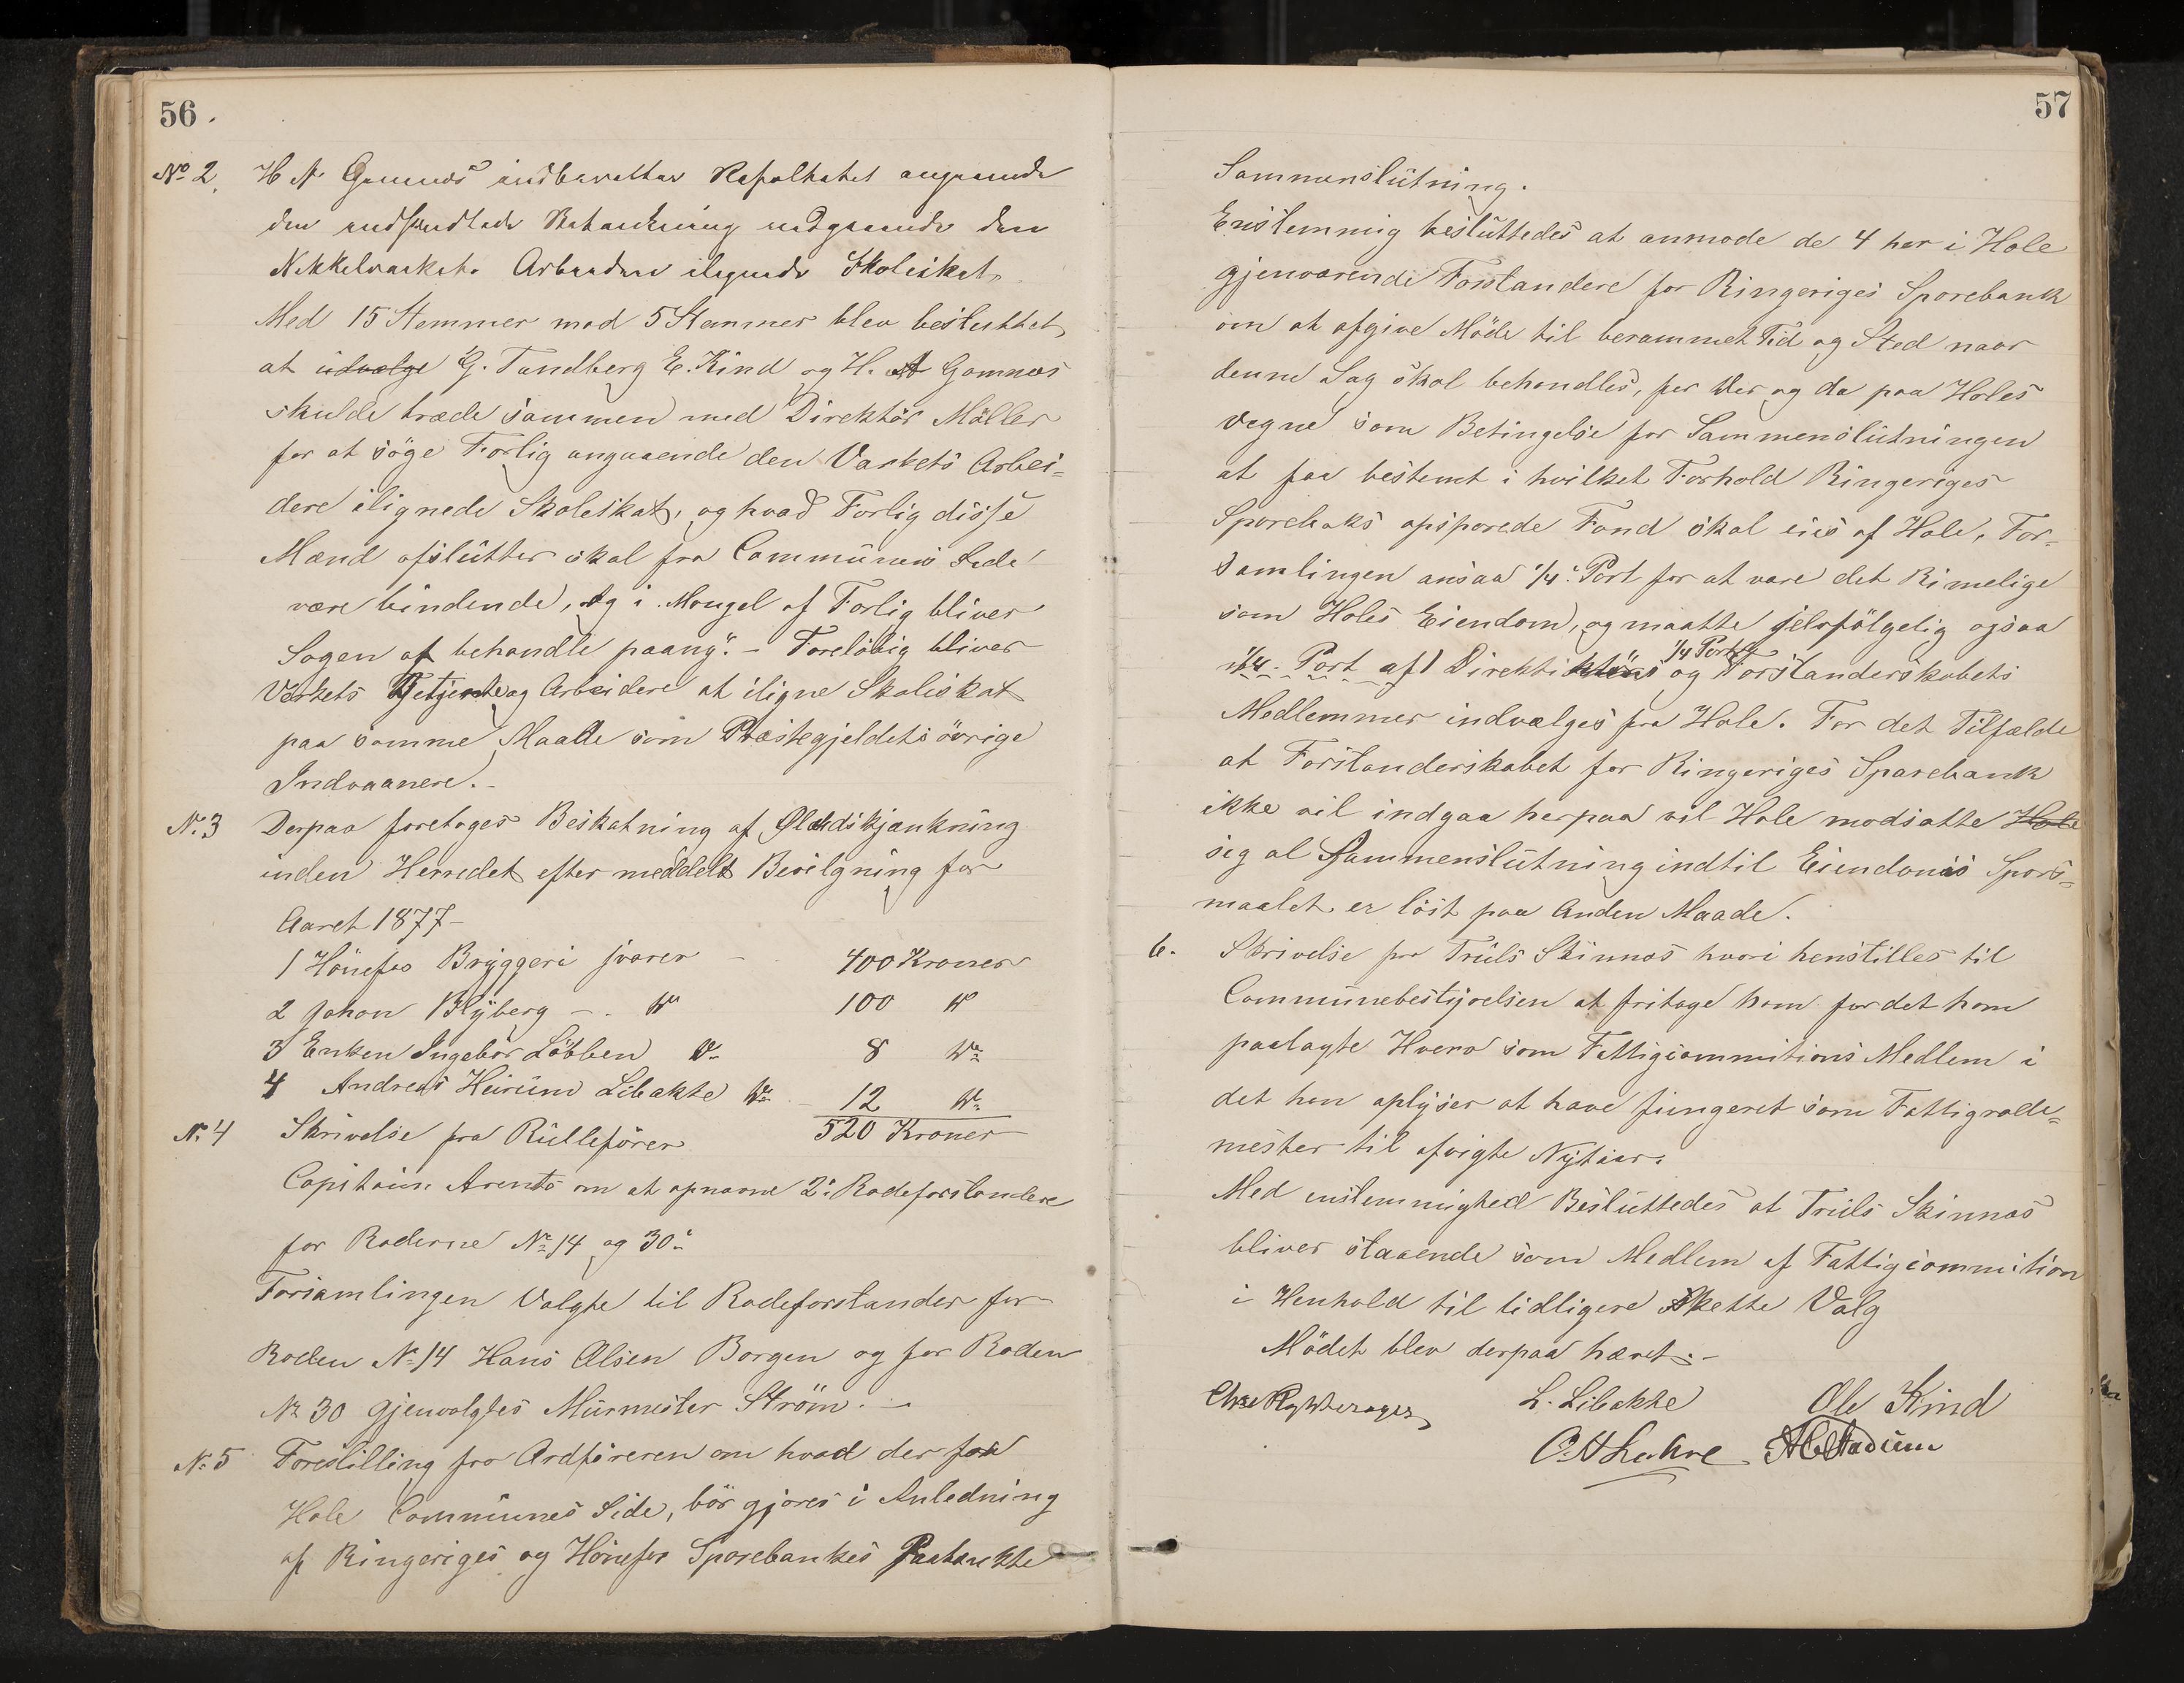 56.
No 2. H N Gomnæs indberetter Resultatet angaaende
den
Nikkelværkets Arbeidere ilignede Skoleskat.
Med 15 Stemmer mod 5 Stemmer blev besluttet
at udvælge G. Tandberg E. Kind og H. N Gomnæs
skulde træde sammen med Direktör Möller
for at söge Forlig angaaende den Værkets Arbei=
dere ilignede Skoleskat, og hvad Forlig disse
Mænd afslutter skal fra Communens Side
være bindende, og i Mangel af Forlig bliver
Sagen at behandle paany. - Forelöbig bliver
Værkets Betjente og Arbeidere at iligne Skoleskat
paa samme Maade som Præstegjeldets övrige
Indvaanere. -
No. 3 Derpaa foretoges Beskatning af Øludskjænkning
inden Herredet efter meddelt Bevilgning for
Aaret 1877 -
1 Hönefos Bryggeri svarer - 400 Kroner
2 Johan Blyberg - . do 100 do
3 Enken Ingebor Löbben do 8 do
4 Andreas Heirum Libakke do - 12 do
520 Kroner
No. 4 Skrivelse fra Rullefører
Capitain Arents om at opnævne 2de Rodeforstandere
for Roderne No 14 og 30.
Forsamlingen Valgte til Rodeforstander for
Roden No 14 Hans Olsen Borgen og for Roden
No 30 gjenvalgtes Murmester Ström. -
No. 5 Forestilling fra Ordföreren om hvad der fra
Hole Communes Side, bör gjøres i Anledning
af Ringeriges og Hönefos Sparebankes Paatænkte
57
Sammenslutning.
Enstemmig besluttedes at anmode de 4 her i Hole
gjenværende Forstandere for Ringeriges Sparebank
om at afgive Möde til berammet Tid og Sted naar
denne Sag skal behandles, for der og da paa Holes
Vegne som Betingelse for Sammenslutningen
at faa bestemt i hvilket Forhold Ringeriges
Sparebaks opsparede Fond skal eies af Hole, For=
samlingen ansaa 1/4. Part for at være det Rimelige
som Holes Eiendom, og maatte selvfölgelig ogsaa
1/4 Part af
1/4. Part af Direktionens og Forstanderskabets
Medlemmer indvælges fra Hole. For det Tilfælde
at Forstanderskabet for Ringeriges Sparebank
ikke vil indgaa herpaa vil Hole modsætte Hole
sig al Sammenslutning indtil Eiendoms Spørs=
maalet er löst paa Anden Maade.
6. Skrivelse fra Truls Skinnæs hvori henstilles til
Communebestyrelsen at fritage ham for det ham
paalagte Hverv som Fattigcommitions Medlem i
det han oplyser at have fungeret som Fattigrode=
mester til afvigte Nytaar.
Med enstemmighed Besluttedes at Truls Skinnæs
bliver staaende som Medlem af Fattigcommition
i Henhold til tidligere Skette Valg
Mödet blev derpaa hævet. -
L. Libakke Ole Kind